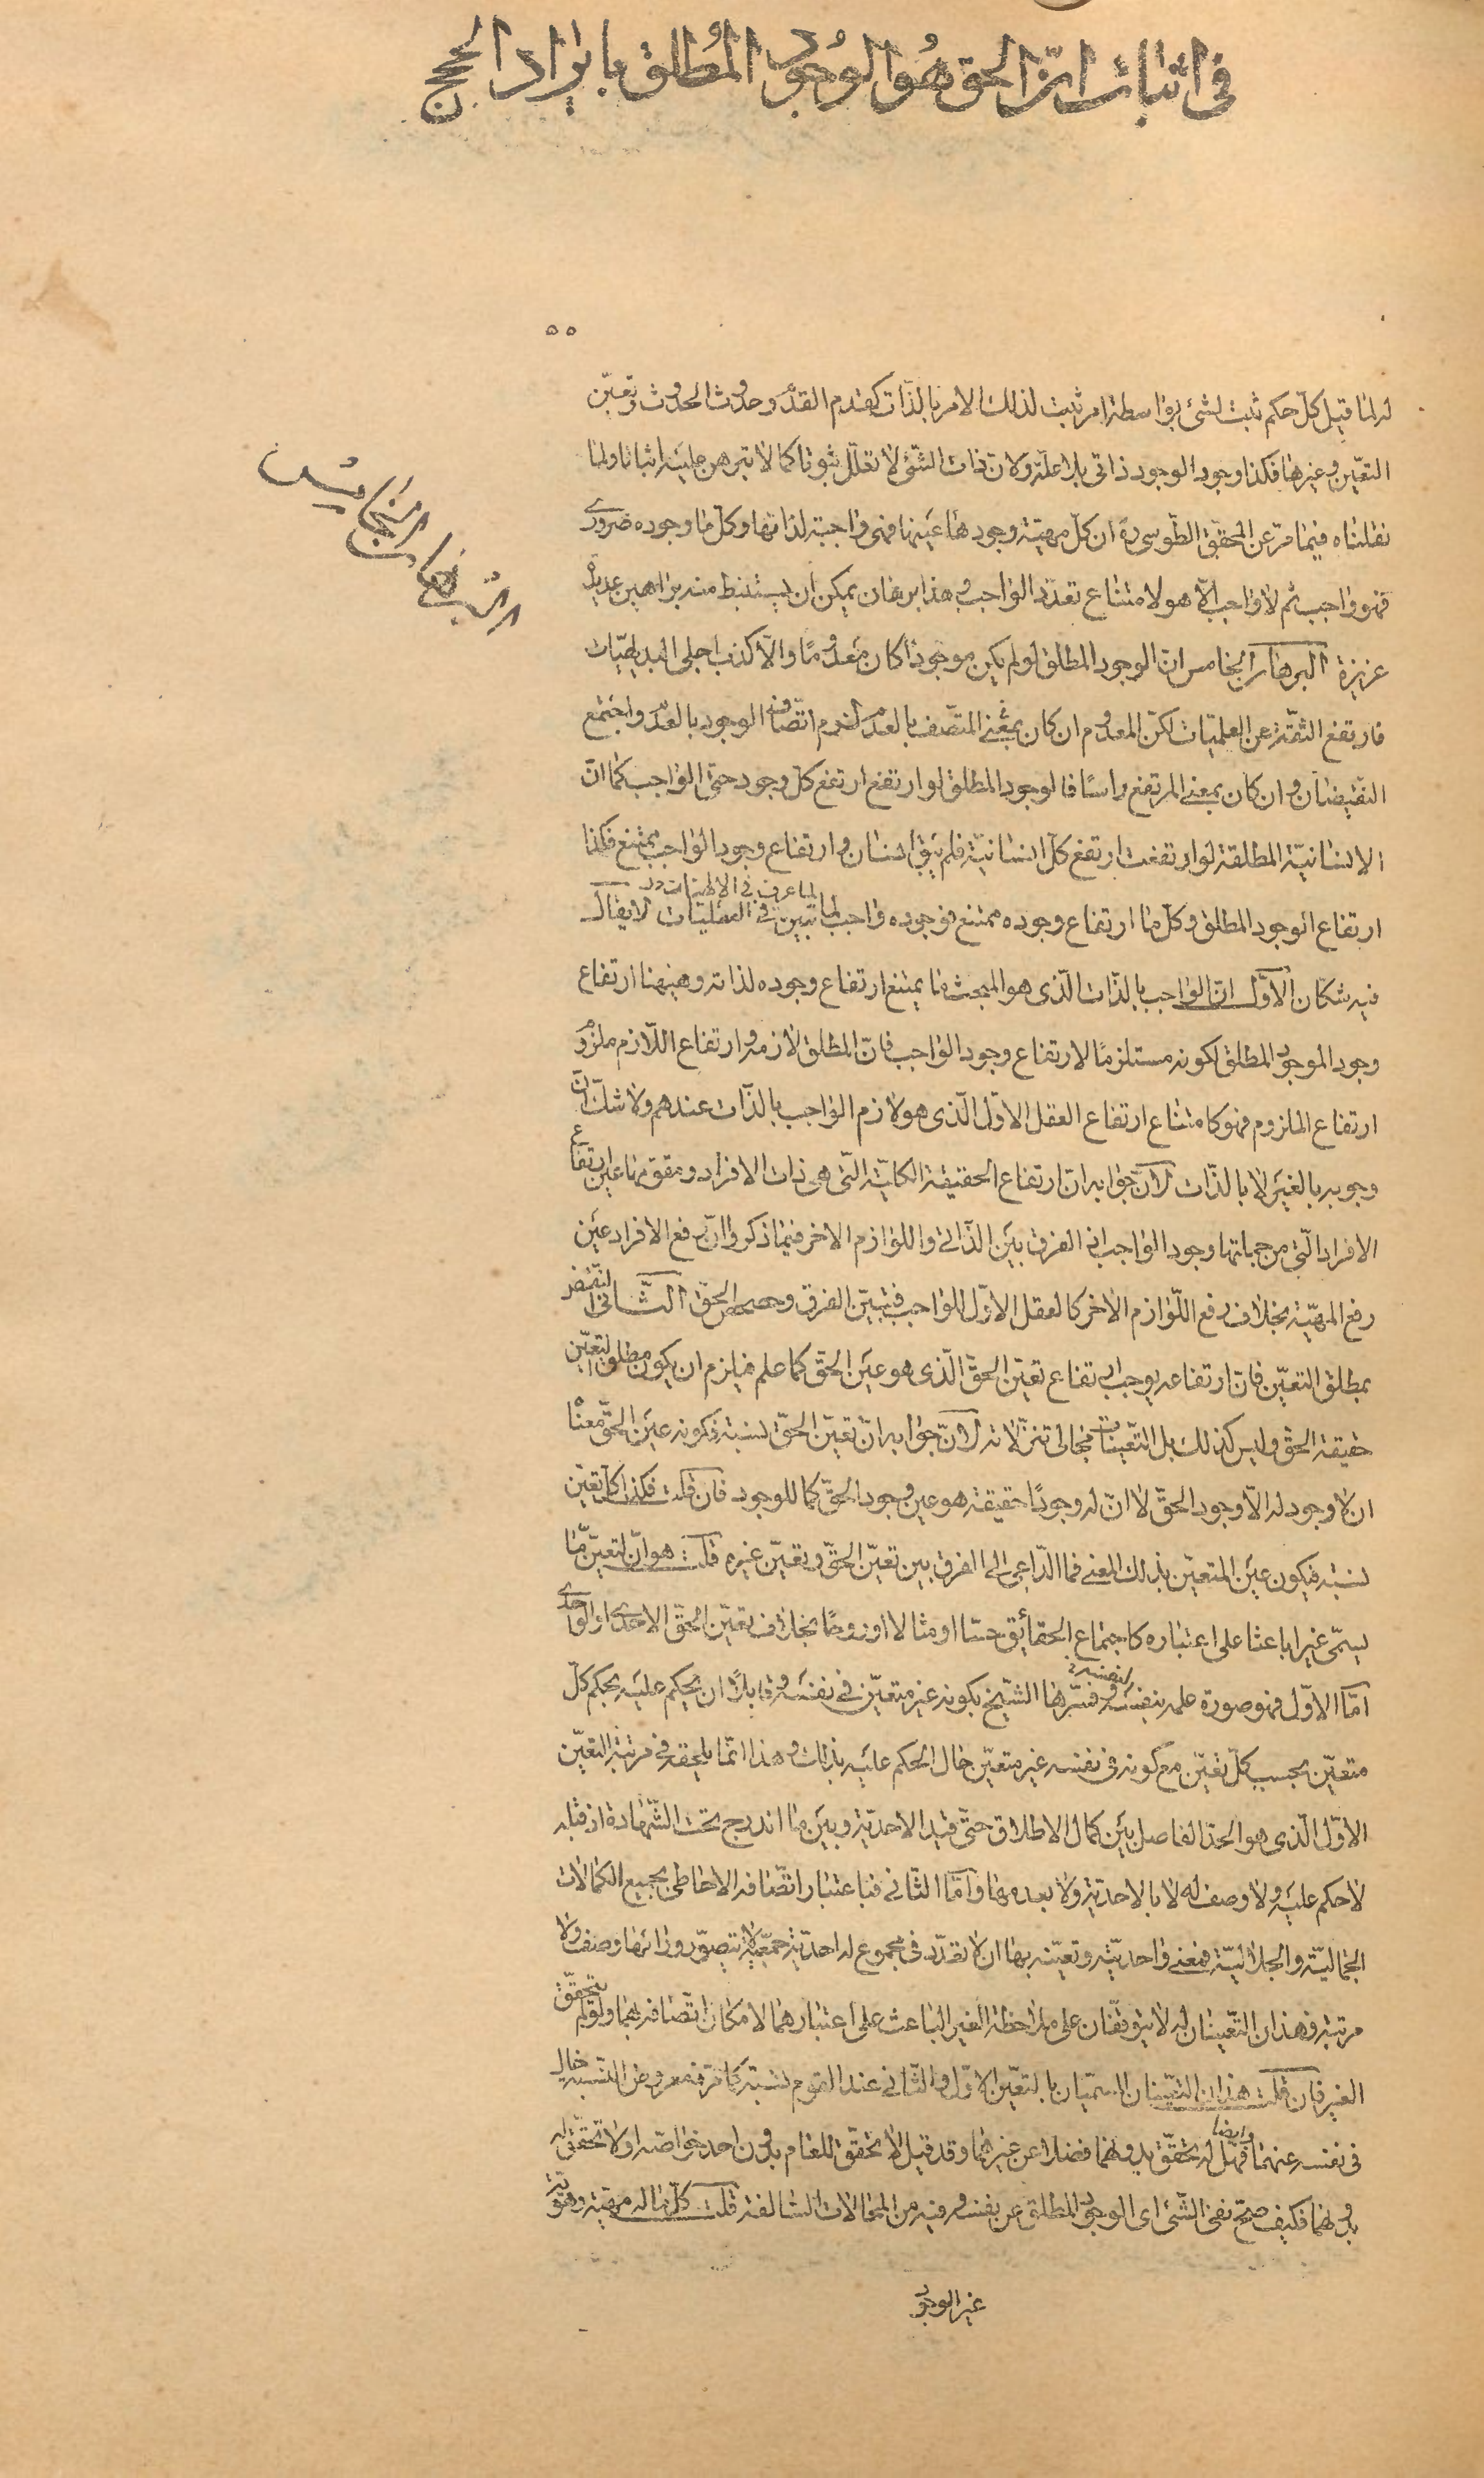 في اثبات انّ الحق هو الوجود المطلق بايراد الحجج
٥٥
له لما قيل كلّ حكم ثبت لشئ بواسطة امر ثبت لذلك الامر بالذّات كقدم القدم وحدوث الحدوث وتعيّن
التعيّن وغيرها فكذا وجود الوجود ذاتي بلا علّة ولانّ ذات الشّئ لا تعلّل ثبوتا كما لا تبرهن عليه اثباتا ولما
نقلناه فيما مرّ عن المحقّق الطّوسي ره ان كلّ مهيّة وجودها عينها فهى واجبة لذاتها وكلّ ما وجوده ضرورى
فهو واجب ثم لا واجب الّا هو لامتناع تعدّد الواجب وهذا برهان يمكن ان يستنبط منه براهين عديدة
البرهان الخامس
عزيزة البرهان الخامس انّ الوجود المطلق لو لم يكن موجودًا كان معدومًا والّا كذب اجلى البديهيّات
فارتفع الثقة عن العلميّات لكنّ المعدوم ان كان بمعنى المتّصف بالعدم لزم اتّصاف الوجود بالعدم واجتمع
النقيضان وان كان بمعنى المرتفع راسًا فالوجود المطلق لو ارتفع ارتفع كلّ وجود حتى الواجب كما انّ
الانسانيّة المطلقة لو ارتفعت ارتفع كلّ انسانيّة فلم يبق انسان وارتفاع وجود الواجب ممتنع فكذا
لما عرف في الالهيات
ارتفاع الوجود المطلق وكلّ ما ارتفاع وجوده ممتنع فوجوده واجب لما تبين في العقليات لا يقال
فيه شكّان الاوّل انّ الواجب بالذّات الّذى هو المبحث ما يمتنع ارتفاع وجوده لذاته وهيهنا ارتفاع
وجود الموجود المطلق لكونه مستلزمًا لارتفاع وجود الواجب فانّ المطلق لازمه وارتفاع اللّازم ملزوم
ارتفاع الملزوم فهو كامتناع ارتفاع العقل الاوّل الّذى هو لازم الواجب بالذّات عندهم ولا شكّ انّ
وجوبه بالغير لا بالذّات لانّ جوابه انّ ارتفاع الحقيقة الكليّة الّتى هى ذات الافراد ومقوّمها عين ارتفاع
الافراد الّتى من جملتها وجود الواجب اذ الفرق بين الذّاتى واللوازم الاخر فيما ذكروا انّ رفع الافراد عين
رفع المهيّة بخلاف رفع اللّوازم الاخر كالعقل الاوّل للواجب فتبيّن الفرق وحصحص الحقّ الثّانى النّقض
بمطلق التعيّن فانّ ارتفاعه يوجب ارتفاع تعيّن الحقّ الّذى هو عين الحقّ كما علم فيلزم ان يكون مطلق التعيّن
حقيقة الحقّ وليس كذلك بل التّعيّنات مجالى تنزّلاته لانّ جوابه انّ تعيّن الحقّ نسبة فكونه عين الحقّ معناه
ان لا وجود له الّا وجود الحقّ لا انّ له وجودًا حقيقة هو عين وجود الحقّ كما للوجود فان قلت فكذا كلّ تعيّن
نسبة فيكون عين المتعيّن بذلك المعنى فما الدّاعى الى الفرق بين تعيّن الحقّ وتعيّن غيره قلت هو انّ لتعيّن ما
يسمّى غيرا باعثا على اعتباره كاجتماع الحقائق حسّا او مثالا او روحًا بخلاف تعيّن الحقّ الاحدى او الواحدى
امّا الاوّل فهو صورة علمه بنفسه وفسّرها الشّيخ بكونه غير متعيّن في نفسه وقابلًا ان يحكم عليه بحكم كلّ
متعيّن بحسب كلّ تعيّن مع كونه في نفسه غير متعيّن حال الحكم عليه بذلك وهذا انّما يلحقه في مرتبة التعيّن
الاوّل الّذى هو الحدّ الفاصل بين كمال الاطلاق حتى قيد الاحديّة وبين ما اندرج تحت الشّهادة اذ قبله
لا حكم عليه ولا وصف له لا بالاحديّة ولا بعدمها وامّا الثّانى فباعتبار اتّصافه الاحاطى بجميع الكمالات
الجماليّة والجلاليّة فمعنى واحديّته وتعيّنه بها ان لا تعدّد في مجموع له احديّة جمعيّة لا يتصوّر وراءها وصف ولا
مرتبة فهذان التّعيّنان له لا يتوقّفان على ملاحظة الغير الباعث على اعتبارهما لامكان اتّصافه بهما ولو لم يتحقّق
الغير فان قلت هذان التعيّنان المسمّيان بالتعيّن الاوّل والثّانى عند القوم نسبة كما مرّ فمعروض النسبة خال
في نفسه عنهما وايضا فهل له تحقّق بدونهما فضلا عن غيرهما وقد قيل لا تحقّق للعام بدون احد خواصّه او لا تحقّق له
بدونهما فكيف صحّ نفى الشّئ اى الوجود المطلق عن نفسه وفيه من المحالات السّالفة قلت كلّ ما له مهيّة وهويّة
غير الوجود